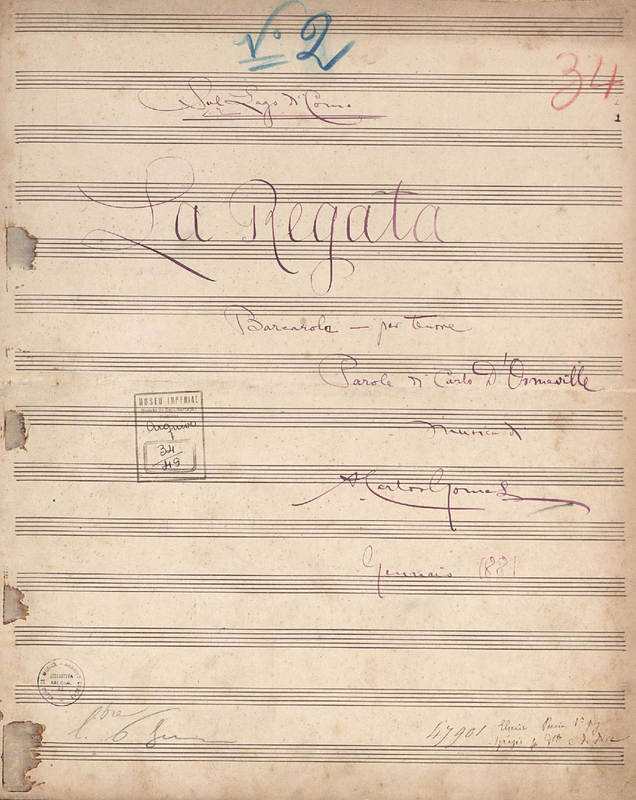 No 2
34
1
Sul Lago di Como
La Regata
Barcarola — per tenore
Parole di Carlo D'Ormeville
Musica di
A. Carlos Gomes
MUSEU IMPERIAL
Arquivo
34
49
Gennaio 1881
BIBLIOTECA
47901